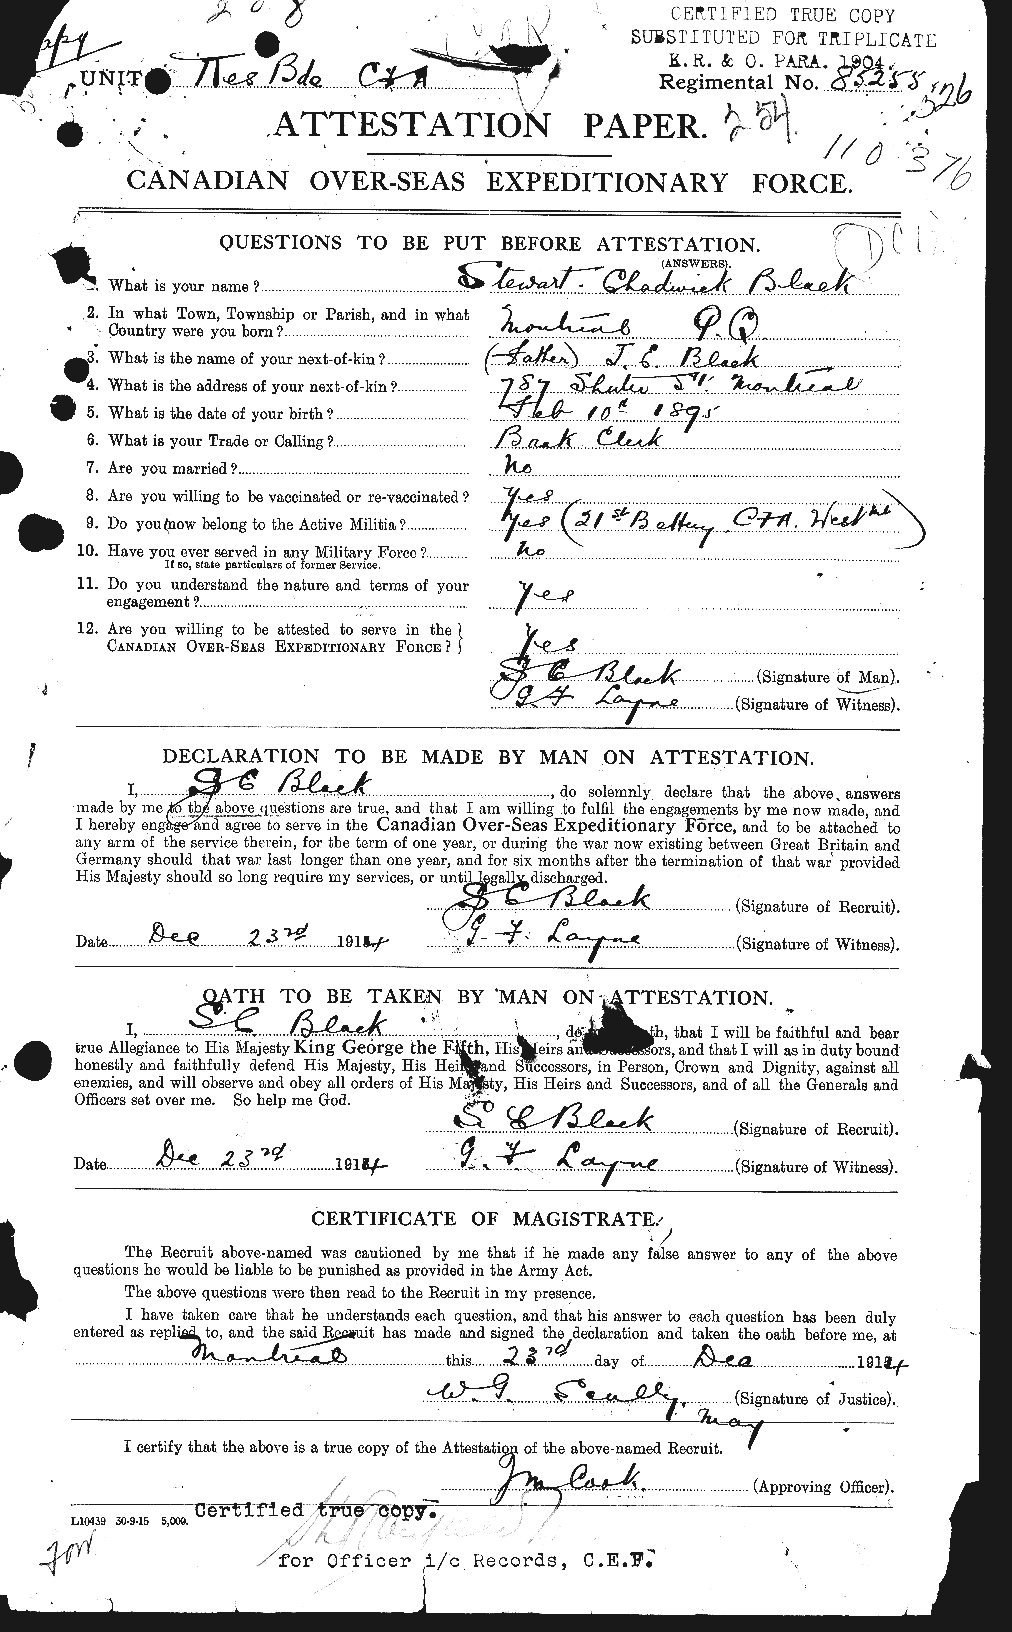 CERTIFIED TRUE COPY
SUBSTITUTED FOR TRIPLICATE
K. R. & O. PARA. 1904.
UNIT Bde C F A
Regimental No. 85255
326
ATTESTATION PAPER.
254
110376
CANADIAN OVER-SEAS EXPEDITIONARY FORCE.
QUESTIONS TO BE PUT BEFORE ATTESTATION.
(ANSWERS).
1. What is your name? Stewart Chadwick Black
2. In what Town, Township or Parish, and in what
Country were you born? Montreal P.Q.
3. What is the name of your next-of-kin? (Father) J. E. Black
4. What is the address of your next-of-kin? 787 Shuter St. Montreal
5. What is the date of your birth? Feb 10th 1895
6. What is your Trade or Calling? Bank Clerk
7. Are you married? No
8. Are you willing to be vaccinated or re-vaccinated? Yes
9. Do you now belong to the Active Militia? Yes (21st Battery C.F.A. Westmt)
10. Have you ever served in any Military Force? No
If so, state particulars of former Service.
11. Do you understand the nature and terms of your
engagement? Yes
12. Are you willing to be attested to serve in the
CANADIAN OVER-SEAS EXPEDITIONARY FORCE? } Yes
S C Black (Signature of Man).
G F Layne (Signature of Witness).
DECLARATION TO BE MADE BY MAN ON ATTESTATION.
I, S C Black, do solemnly declare that the above answers
made by me to the above questions are true, and that I am willing to fulfil the engagements by me now made, and
I hereby engage and agree to serve in the Canadian Over-Seas Expeditionary Force, and to be attached to
any arm of the service therein, for the term of one year, or during the war now existing between Great Britain and
Germany should that war last longer than one year, and for six months after the termination of that war provided
His Majesty should so long require my services, or until legally discharged.
S C Black (Signature of Recruit).
Date Dec 23rd 1914 G. F. Layne (Signature of Witness).
OATH TO BE TAKEN BY MAN ON ATTESTATION.
I, S C Black, do , that I will be faithful and bear
true Allegiance to His Majesty King George the Fifth, His Heirs and Successors, and that I will as in duty bound
honestly and faithfully defend His Majesty, His Heirs and Successors, in Person, Crown and Dignity, against all
enemies, and will observe and obey all orders of His Majesty, His Heirs and Successors, and of all the Generals and
Officers set over me. So help me God.
S C Black (Signature of Recruit).
Date Dec 23rd 1914 G. F Layne (Signature of Witness).
CERTIFICATE OF MAGISTRATE.
The Recruit above-named was cautioned by me that if he made any false answer to any of the above
questions he would be liable to be punished as provided in the Army Act.
The above questions were then read to the Recruit in my presence.
I have taken care that he understands each question, and that his answer to each question has been duly
entered as replied to, and the said Recruit has made and signed the declaration and taken the oath before me, at
Montreal this 23rd day of Dec 1914
W G Scully. (Signature of Justice).
May
I certify that the above is a true copy of the Attestation of the above-named Recruit.
Cook. (Approving Officer).
L10439 30-9-15 5,000. Certified true copy.
for Officer i/c Records, C.E.F.